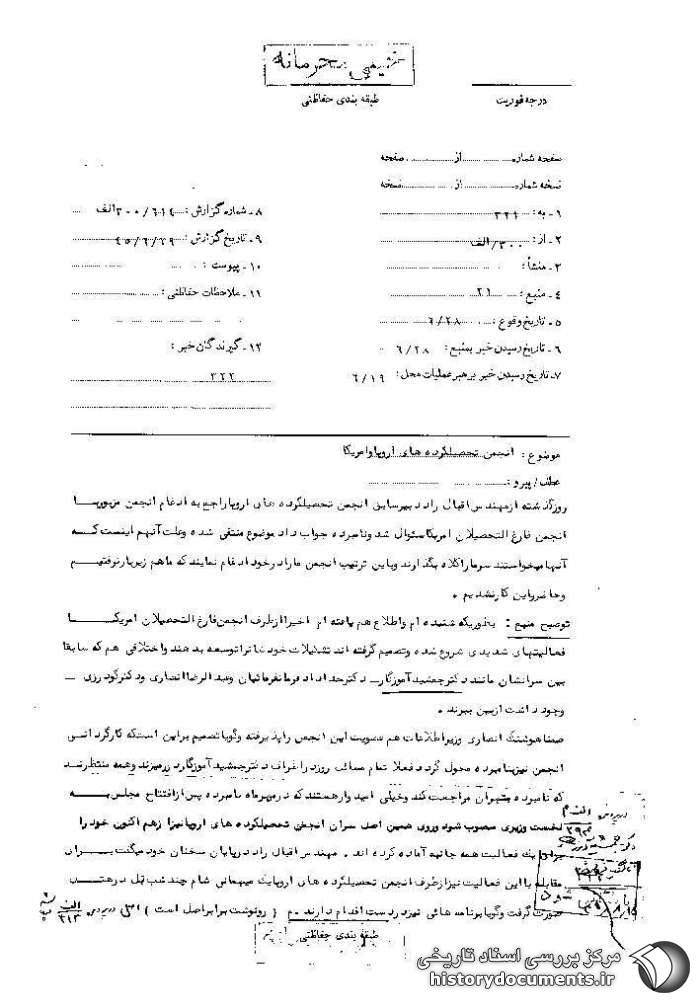 خیلی محرمانه
درجه فوریت
طبقه بندی حفاظتی
صفحه شماره ............ از ............ صفحه
نسخه شماره ............ از ............ نسخه
۱ - به : ۳۲۱
۲ - از : ۳۰۰/الف
۳ - منشأ :
۴ - منبع : ۲۱
۵ - تاریخ وقوع : ۶/۲۸
۶ - تاریخ رسیدن خبر بمنبع : ۶/۲۸
۷ - تاریخ رسیدن خبر برهبر عملیات محل : ۶/۱۹
۸ - شماره گزارش : ۳۰۰/۶۱۴ الف
۹ - تاریخ گزارش : ۴۵/۶/۲۹
۱۰ - پیوست :
۱۱ - ملاحظات حفاظتی :
۱۲ - گیرندگان خبر :
۳۲۲
موضوع : انجمن تحصیلکرده های اروپا وامریکا
عطف / پیرو :
روزگذشته ازمهندس اقبال راد دبیرسابق انجمن تحصیلکرده های اروپا راجع به ادغام انجمن مزبور با
انجمن فارغ التحصیلان امریکا سئوال شد ونامبرده جواب داد موضوع منتفی شده وعلت آنهم اینست که
آنها میخواستند سرما را کلاه بگذارند وباین ترتیب انجمن ما را درخود ادغام نمایند که ماهم زیربار نرفتیم
وحاضر باین کار نشدیم .
توضیح منبع : بطوریکه شنیده ام واطلاع هم یافته ام اخیرا ازطرف انجمن فارغ التحصیلان امریکا
فعالیتهای شدیدی شروع شده وتصمیم گرفته اند تشکیلات خودشانرا توسعه بدهند واختلافی هم که سابقا
بین سرانشان مانند دکترجمشید آموزگار - دکترخداداد فرمانفرمائیان وعبدالرضا انصاری ودکترگودرزی
وجود داشت ازبین ببرند .
ضمنا هوشنگ انصاری وزیراطلاعات هم عضویت این انجمن را پذیرفته وگویا تصمیم براین است که کارگردانی
انجمن نیزبنامبرده محول گردد فعلا تمام مسائل روز دراطراف دکترجمشید آموزگار دورمیزند وهمه منتظرند
که نامبرده بتهران مراجعت کند وخیلی امیدوارهستند که درمهرماه نامبرده پس ازافتتاح مجلس به
نخست وزیری منصوب شود وروی همین اصل سران انجمن تحصیلکرده های اروپا نیز ازهم اکنون خود را
برای یک فعالیت همه جانبه آماده کرده اند . مهندس اقبال راد درپایان سخنان خود میگفت برای
مقابله با این فعالیت نیز ازطرف انجمن تحصیلکرده های اروپا یک میهمانی شام چند شب قبل درهتل
صورت گرفت وگویا برنامه هائی نیز دردست اقدام دارند . م ( رونوشت برابراصل است )
طبقه بندی حفاظتی
مرکز بررسی اسناد تاریخی
historydocuments.ir